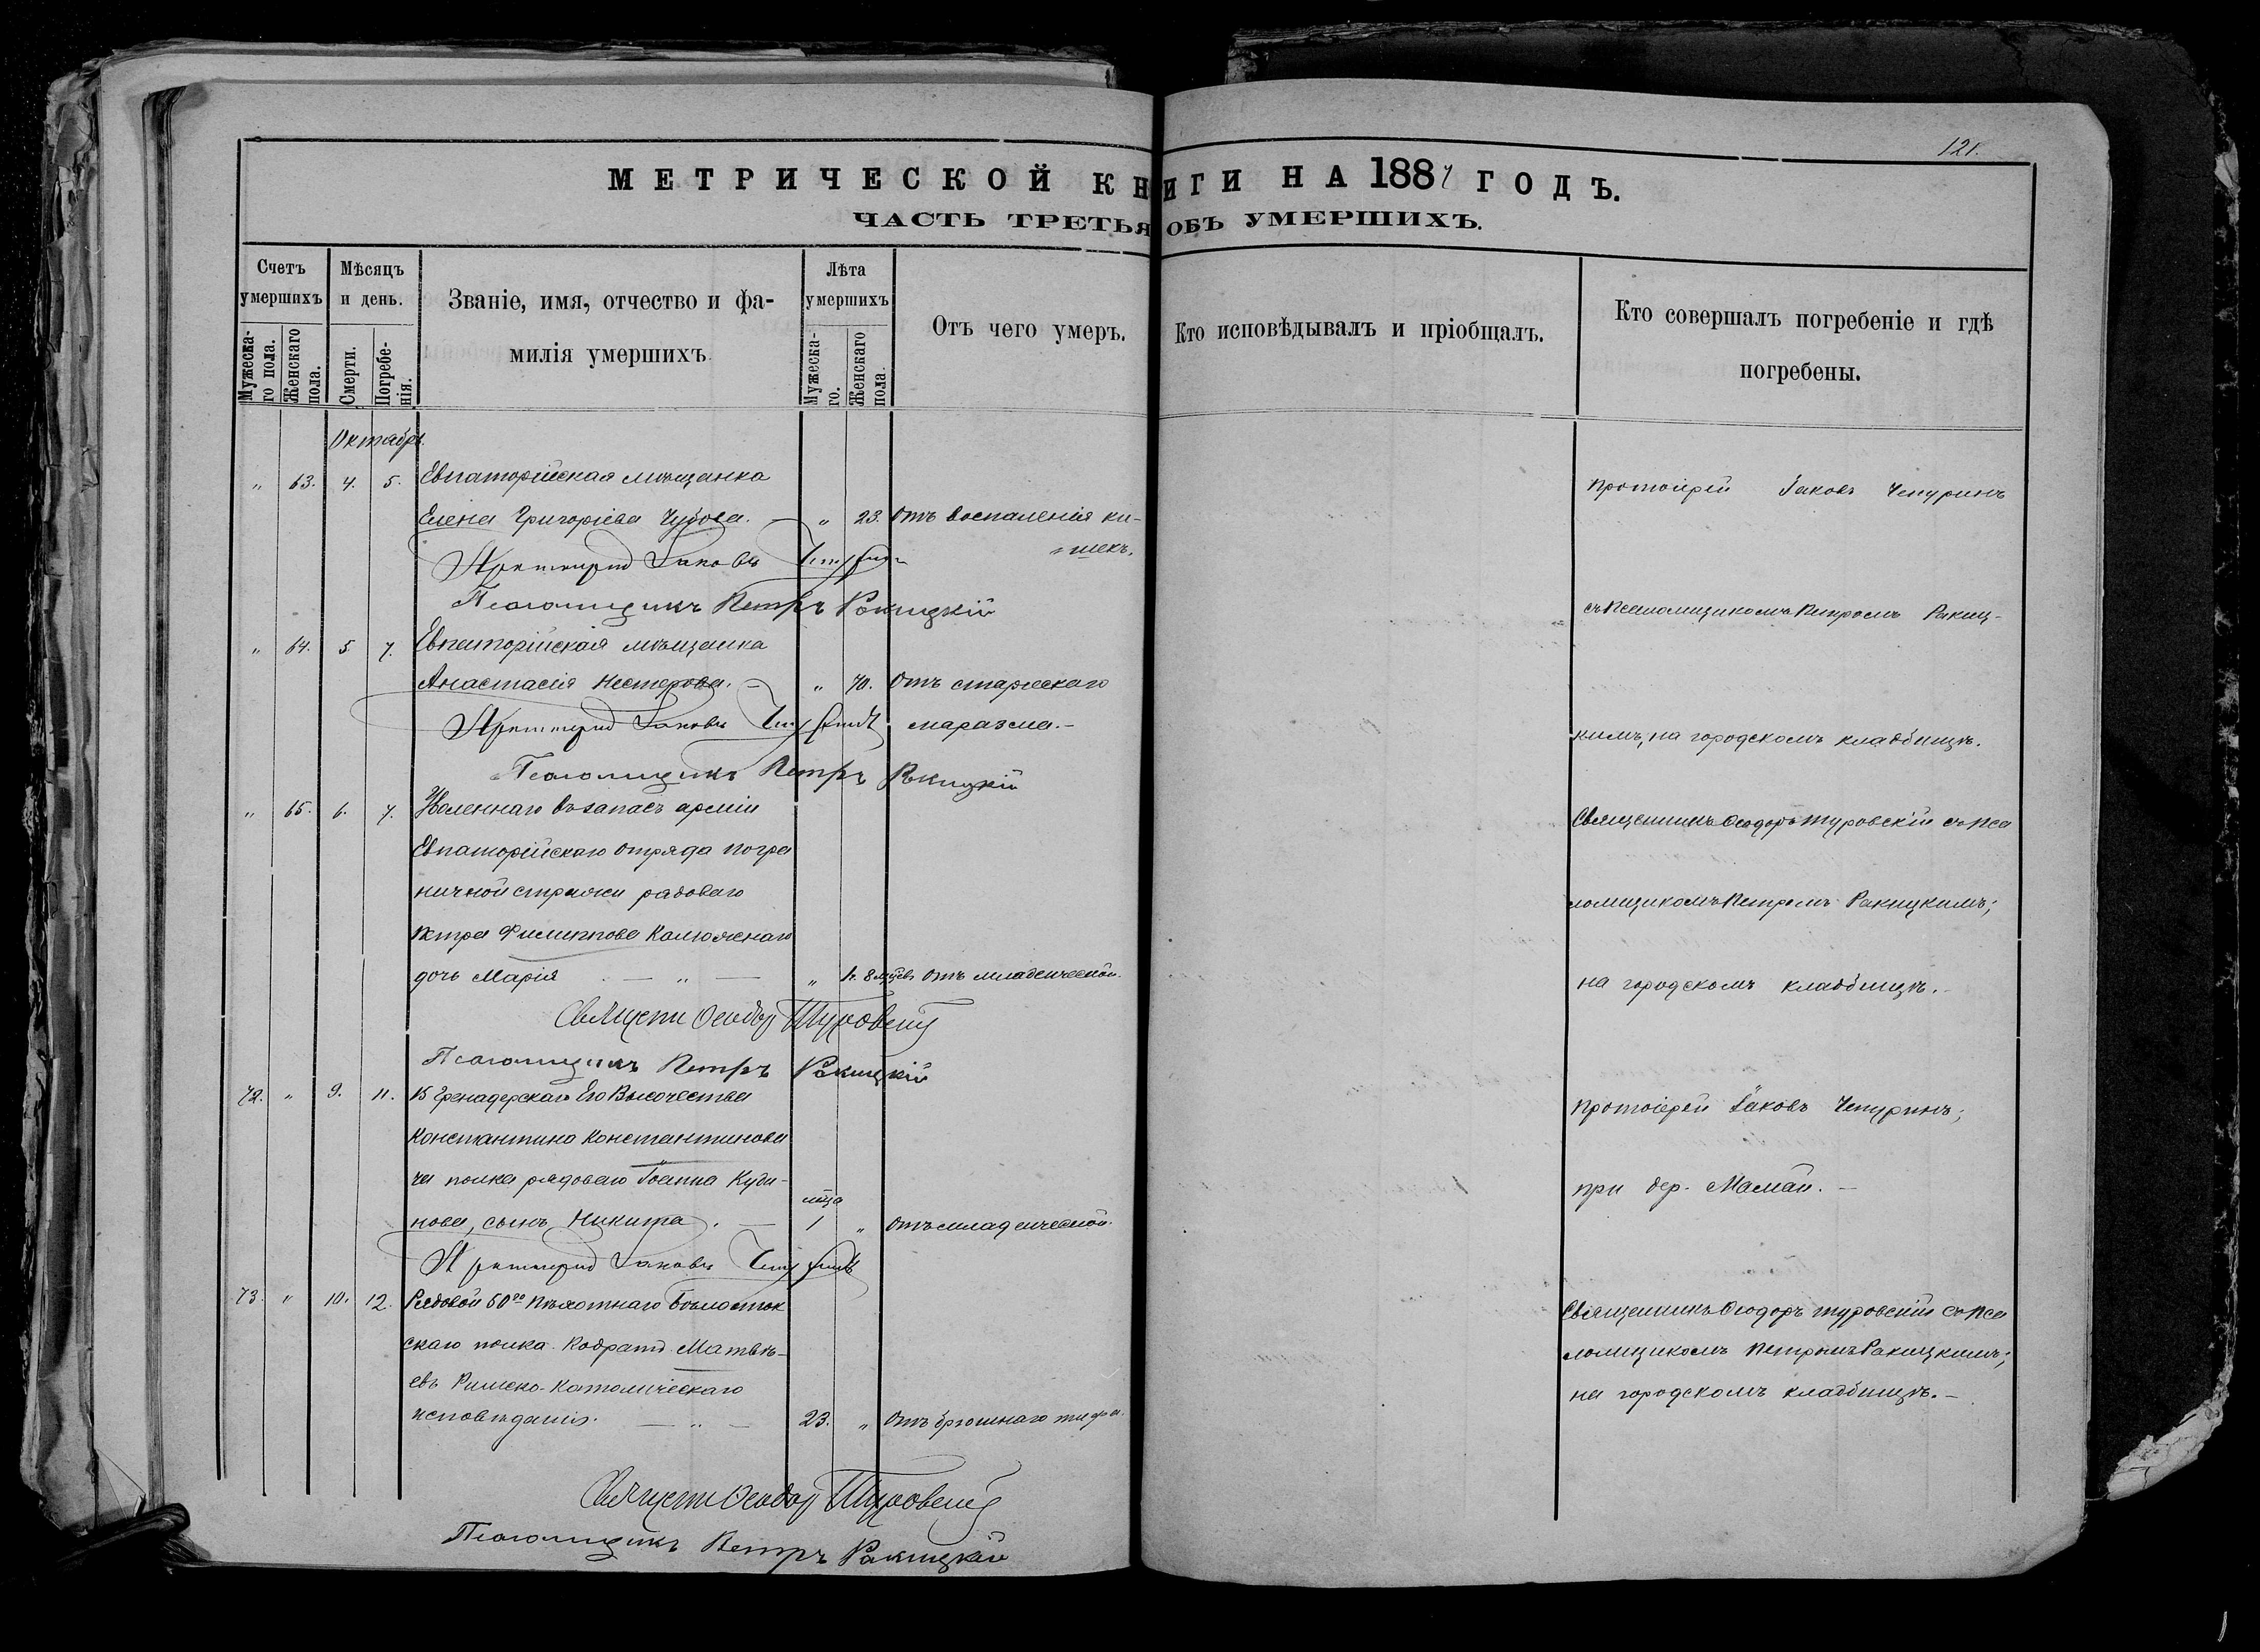 121.
МЕТРИЧЕСКОЙ КНИГИ НА 1887 ГОДЪ.
ЧАСТЬ ТРЕТЬЯ ОБЪ УМЕРШИХЪ.
Счетъ умершихъ
Мужеска-го пола.
Женскаго пола.
Мѣсяцъ и день.
Смерти.
Погребе-нія.
Званіе, имя, отчество и фа-
милія умершихъ
Лѣта умершихъ
Мужеска-го.
Женскаго пола.
Отъ чего умеръ.
Кто исповѣдывалъ и пріобщалъ.
Кто совершалъ погребеніе и гдѣ
погребены.
Октябрь.
„ 63. 4. 5. Евпаторійская мѣщанка
Елена Григоріева Чубова. — „ 23. Отъ воспаленія ки-
шекъ.
Протоіерей Іаковъ Чепуринъ
Псаломщикъ Петръ Ракицкій
протоіерей Іаковъ Чепуринъ
съ псаломщикомъ Петромъ Ракиц-
„ 64. 5. 7. Евпаторійская мѣщанка
Анастасія Нестерова. — „ 70. Отъ старческаго
маразма. —
Протоіерей Іаковъ Чепуринъ
Псаломщикъ Петръ Ракицкій
кимъ, на городскомъ кладбищѣ.
„ 65. 6. 7. Уволеннаго въ запасъ арміи
Евпаторійскаго отряда погра
ничной стражи рядоваго
Петра Филиппова Калюжнаго
дочь Марія — „ — „ 1. 8 мцев Отъ младенческой.
Священн Ѳеодор Туровскій
Псаломщикъ Петръ Ракицкій
Священникъ Ѳеодоръ Туровскій съ пса
ломщикомъ Петромъ Ракицкимъ;
на городскомъ кладбищѣ. —
72. „ 9. 11. 15 Гренадерскаго Его Высочества
Константина Константинови
ча полка рядоваго Іоанна Куди-
нова, сынъ Никита. — мца 1 „ Отъ младенческой.
Протоіерей Іаковъ Чепуринъ
протоіерей Іаковъ Чепуринъ;
при дер. Мамай. —
73. „ 10. 12. Рядовой 50го пѣхотнаго Бѣлосток
скаго полка Кодратъ Матвѣ-
евъ Римско-Католическаго
исповѣданія. — „ — 23. „ Отъ брюшнаго тифа.
Священн Ѳеодор Туровскій
Псаломщикъ Петръ Ракицкій
Священникъ Ѳеодоръ Туровскій съ пса
ломщикомъ Петромъ Ракицкимъ;
на городскомъ кладбищѣ. —